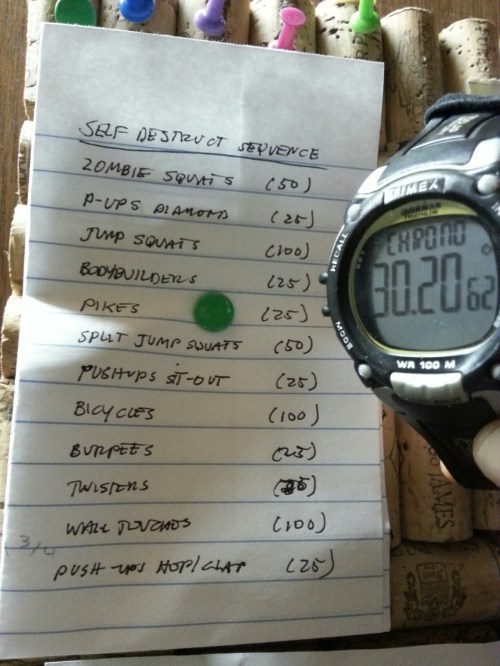 SELF DESTRUCT SEQUENCE
ZOMBIE SQUATS (50)
P-UPS DIAMOND (25)
JUMP SQUATS (100)
BODYBUILDERS (25)
PIKES (25)
SPLIT JUMP SQUATS (50)
PUSHUPS SIT-OUT (25)
BICYCLES (100)
BURPEES (25)
TWISTERS
WALL TOUCHES (100)
PUSH-UPS HOP/CLAP (25)
TIMEX
IRONMAN
TRIATHLON
RECALL
CHRONO
30.20 62
WR 100 M
JAMES